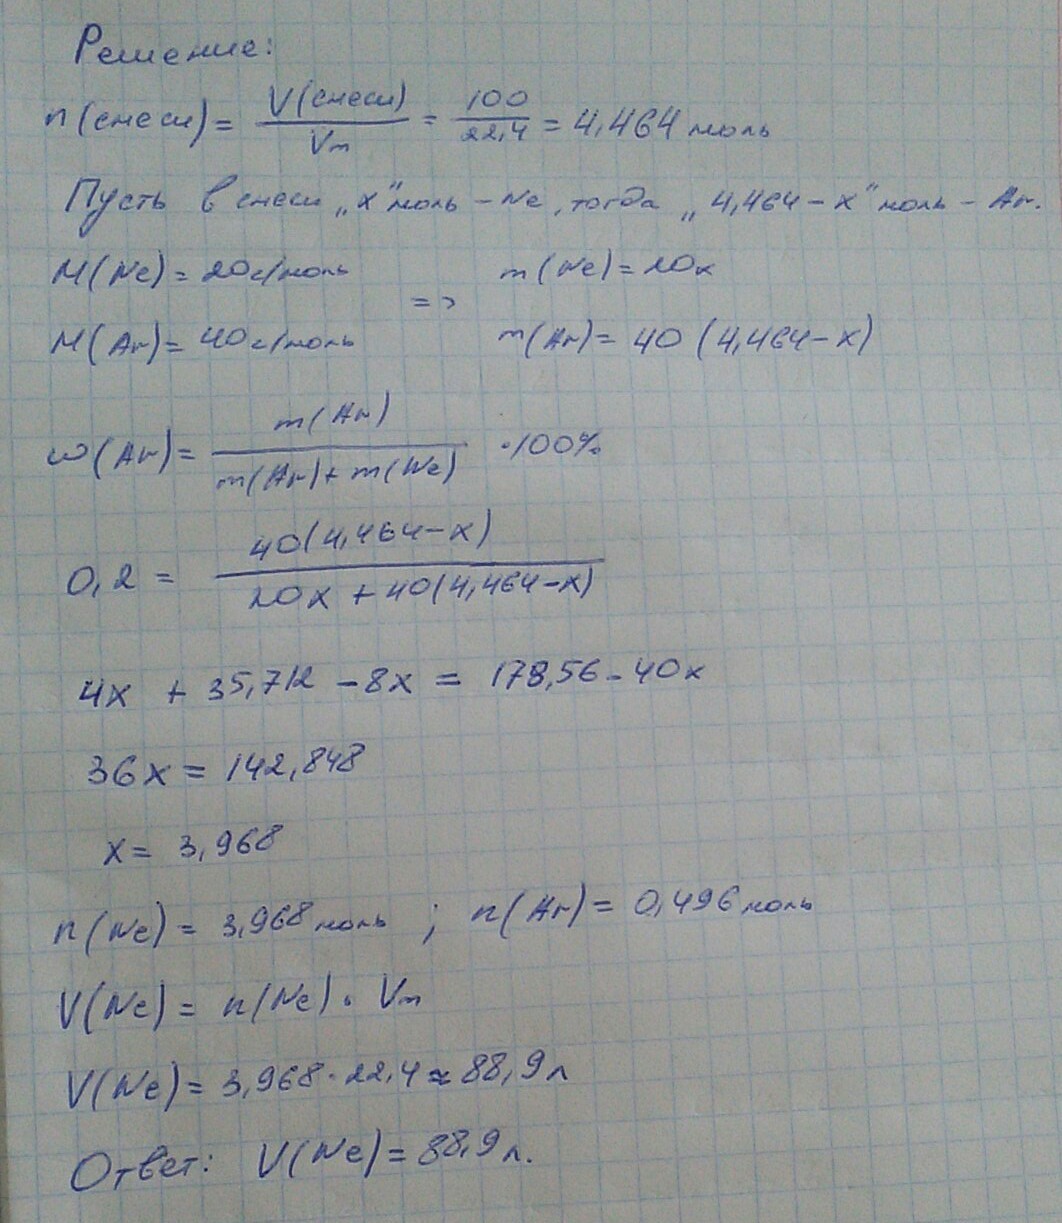 Решение:
n(смеси) = V(смеси)/Vm = 100/22,4 = 4,464 моль
Пусть в смеси „x" моль - Ne, тогда „4,464 - x" моль - Ar.
M(Ne) = 20 г/моль => m(Ne) = 20x
M(Ar) = 40 г/моль m(Ar) = 40 (4,464 - x)
ω(Ar) = m(Ar)/(m(Ar) + m(Ne)) · 100%
0,2 = 40(4,464 - x)/(20x + 40(4,464 - x))
4x + 35,712 - 8x = 178,56 - 40x
36x = 142,848
x = 3,968
n(Ne) = 3,968 моль ; n(Ar) = 0,496 моль
V(Ne) = n(Ne) · Vm
V(Ne) = 3,968 · 22,4 ≈ 88,9 л
Ответ: V(Ne) = 88,9 л.